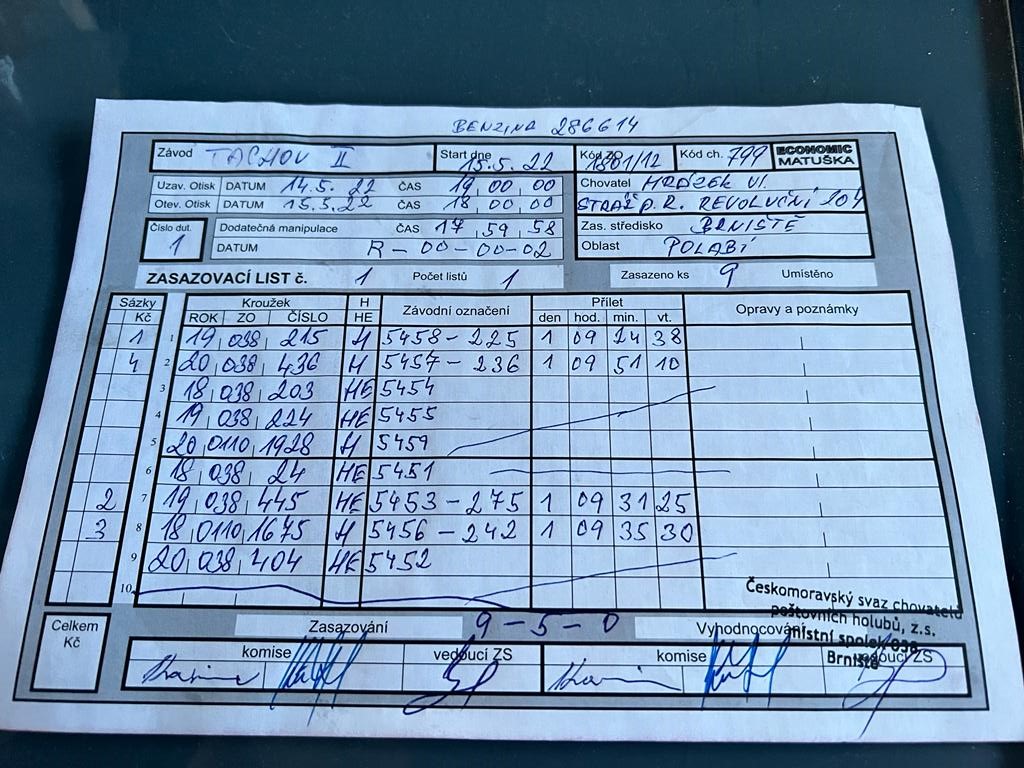 BENZINA 286614
Závod TACHOV II Start dne 15.5.22 Kód ZO 1801/12 Kód ch. 799 ECONOMIC MATUŠKA
Uzav. Otisk DATUM 14.5.22 ČAS 19 00 00 Chovatel HRÁZEK Vl.
Otev. Otisk DATUM 15.5.22 ČAS 18 00 00 STRÁŽ p.R. REVOLUČNÍ 204
Číslo dut. 1 Dodatečná manipulace ČAS 17 59 58 Zas. středisko BRNIŠTĚ
DATUM R-00-00-02 Oblast POLABÍ
ZASAZOVACÍ LIST č. 1 Počet listů 1 Zasazeno ks 9 Umístěno
Sázky Kroužek H Závodní označení Přílet Opravy a poznámky
Kč ROK ZO ČÍSLO HE den hod. min. vt.
1 1 19 038 215 H 5458-225 1 09 24 38
4 2 20 038 436 H 5457-236 1 09 51 10
3 18 038 203 HE 5454
4 19 038 224 HE 5455
5 20 0110 1928 H 5459
6 18 038 24 HE 5451
2 7 19 038 445 HE 5453-275 1 09 31 25
3 8 18 0110 1675 H 5456-242 1 09 35 30
9 20 038 404 HE 5452
10
Českomoravský svaz chovatelů
poštovních holubů, z.s.
místní spolek 038
Brniště
Celkem Kč Zasazování 9-5-0 Vyhodnocování
komise vedoucí ZS komise vedoucí ZS